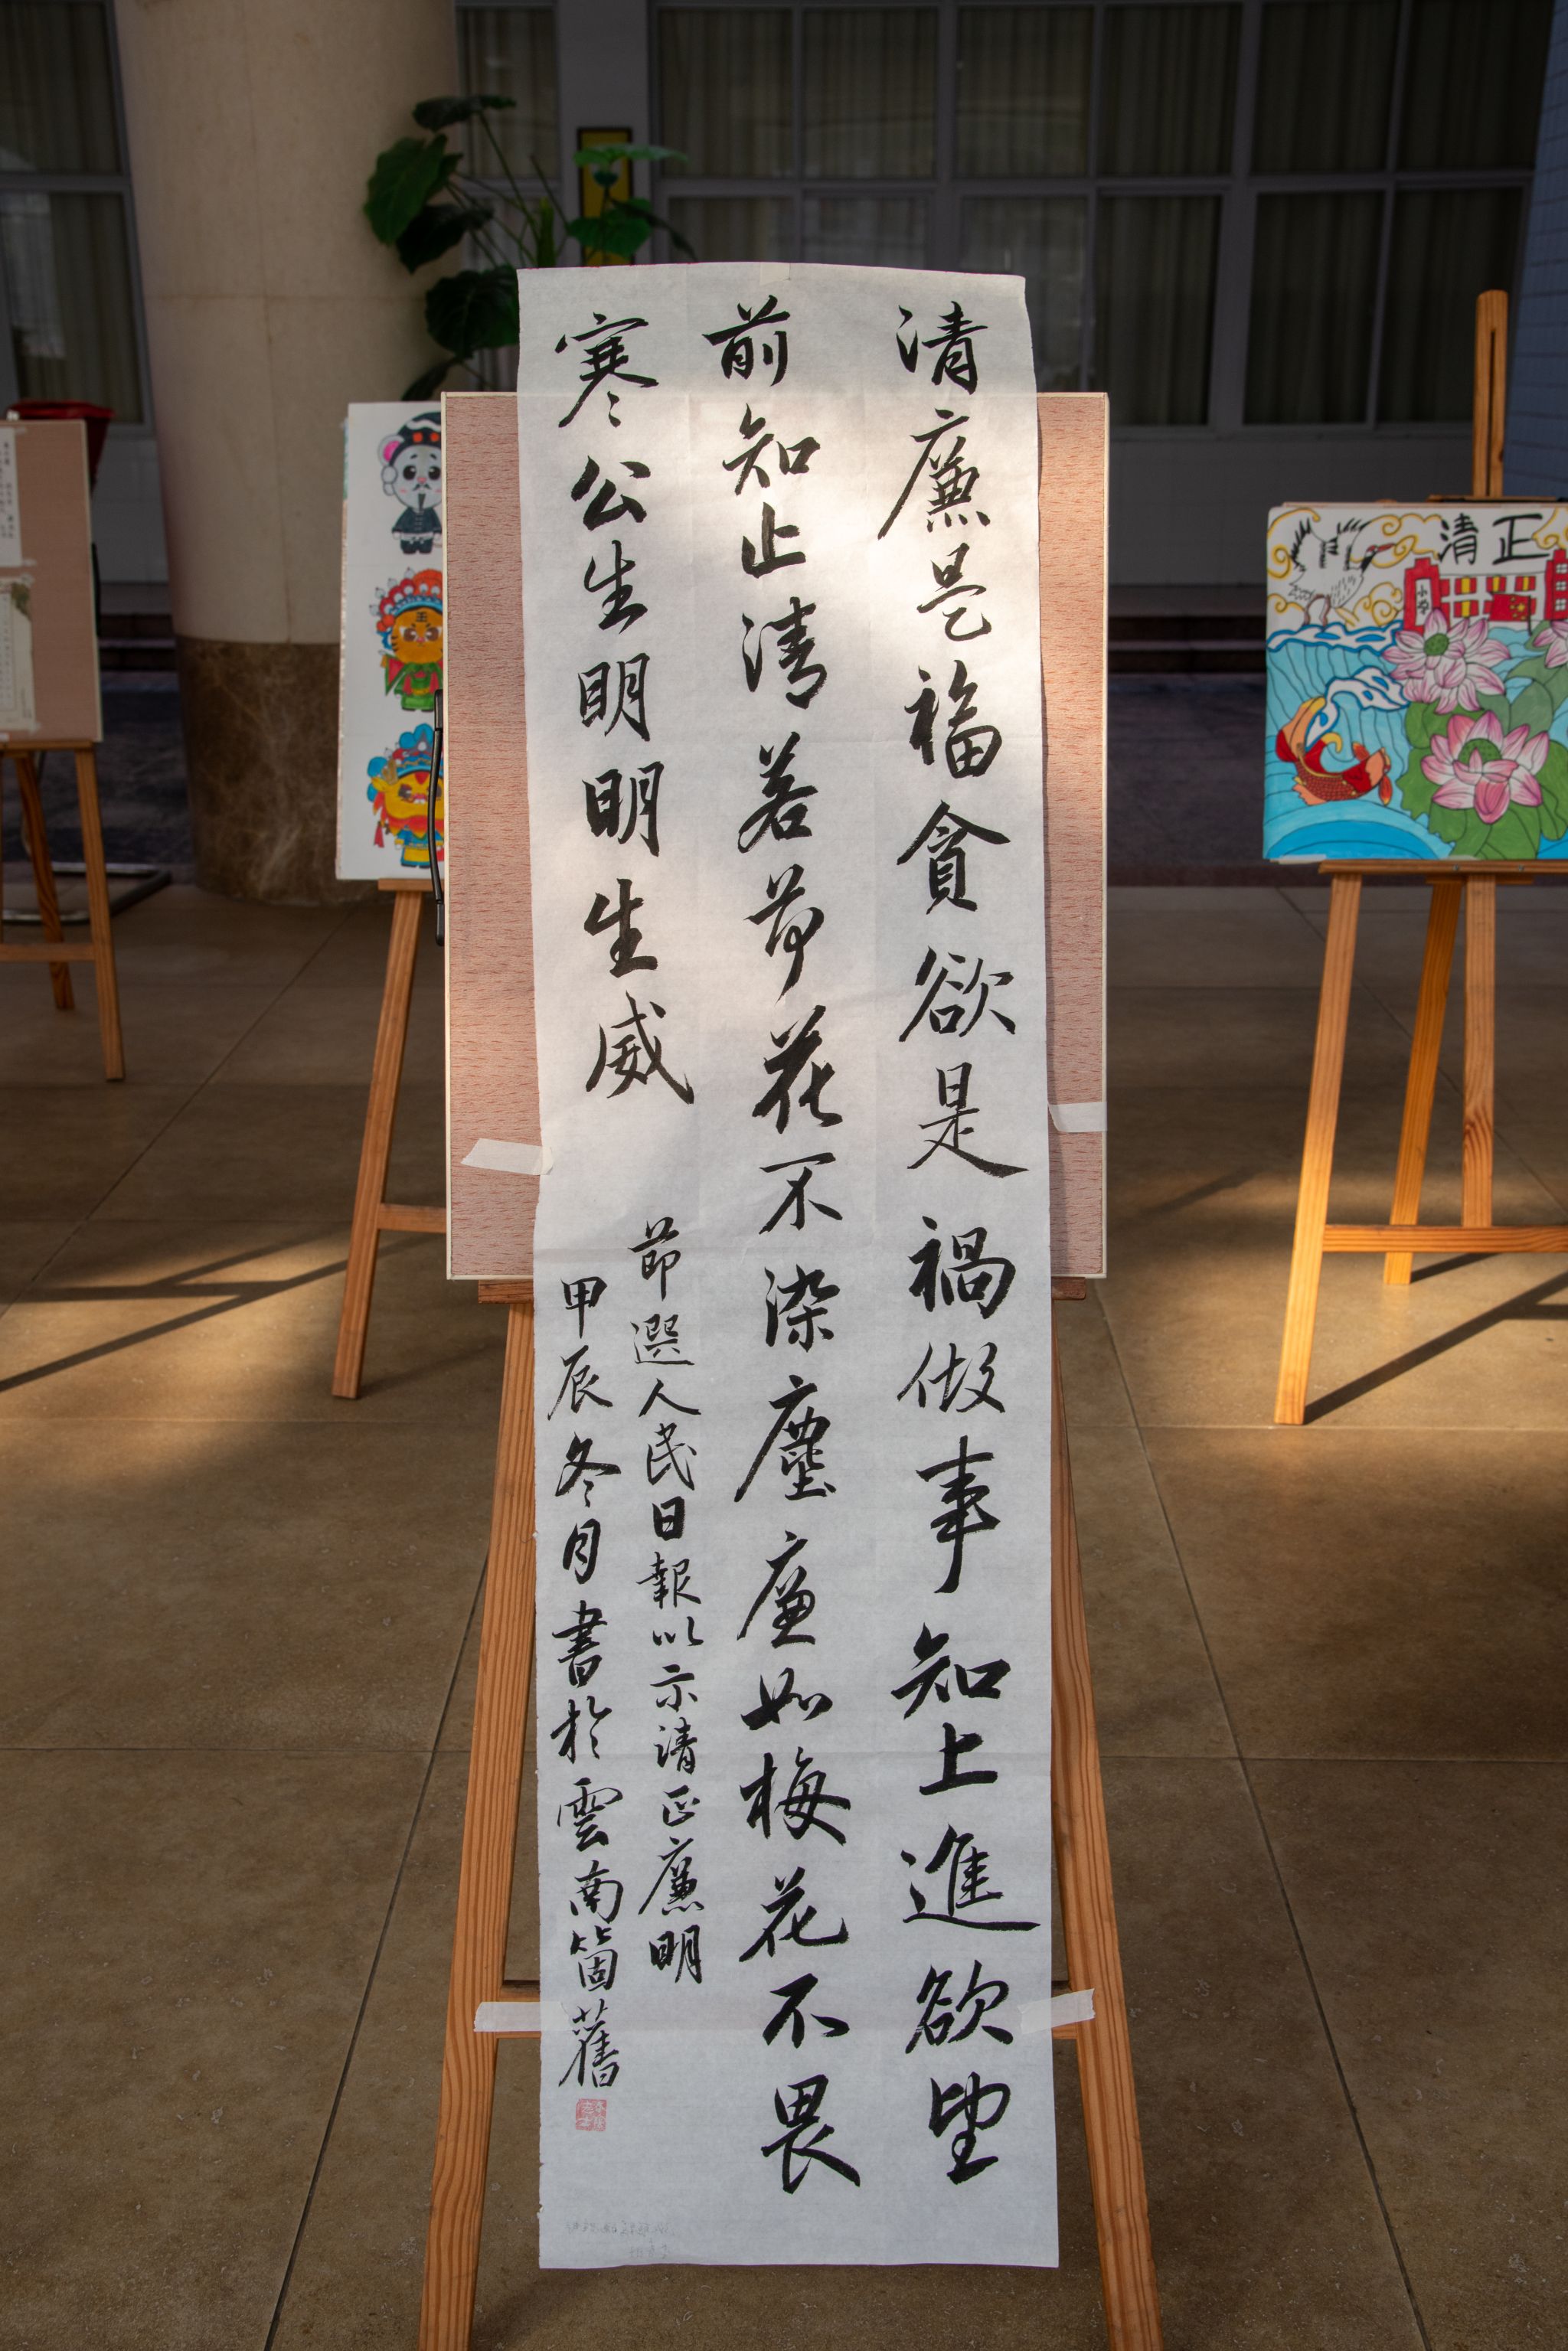 清廉是福貪欲是禍做事知上進欲望
前知止清若荷花不染塵廉如梅花不畏
寒公生明明生威
節選人民日報以示清正廉明
甲辰冬月書於雲南箇舊
清正